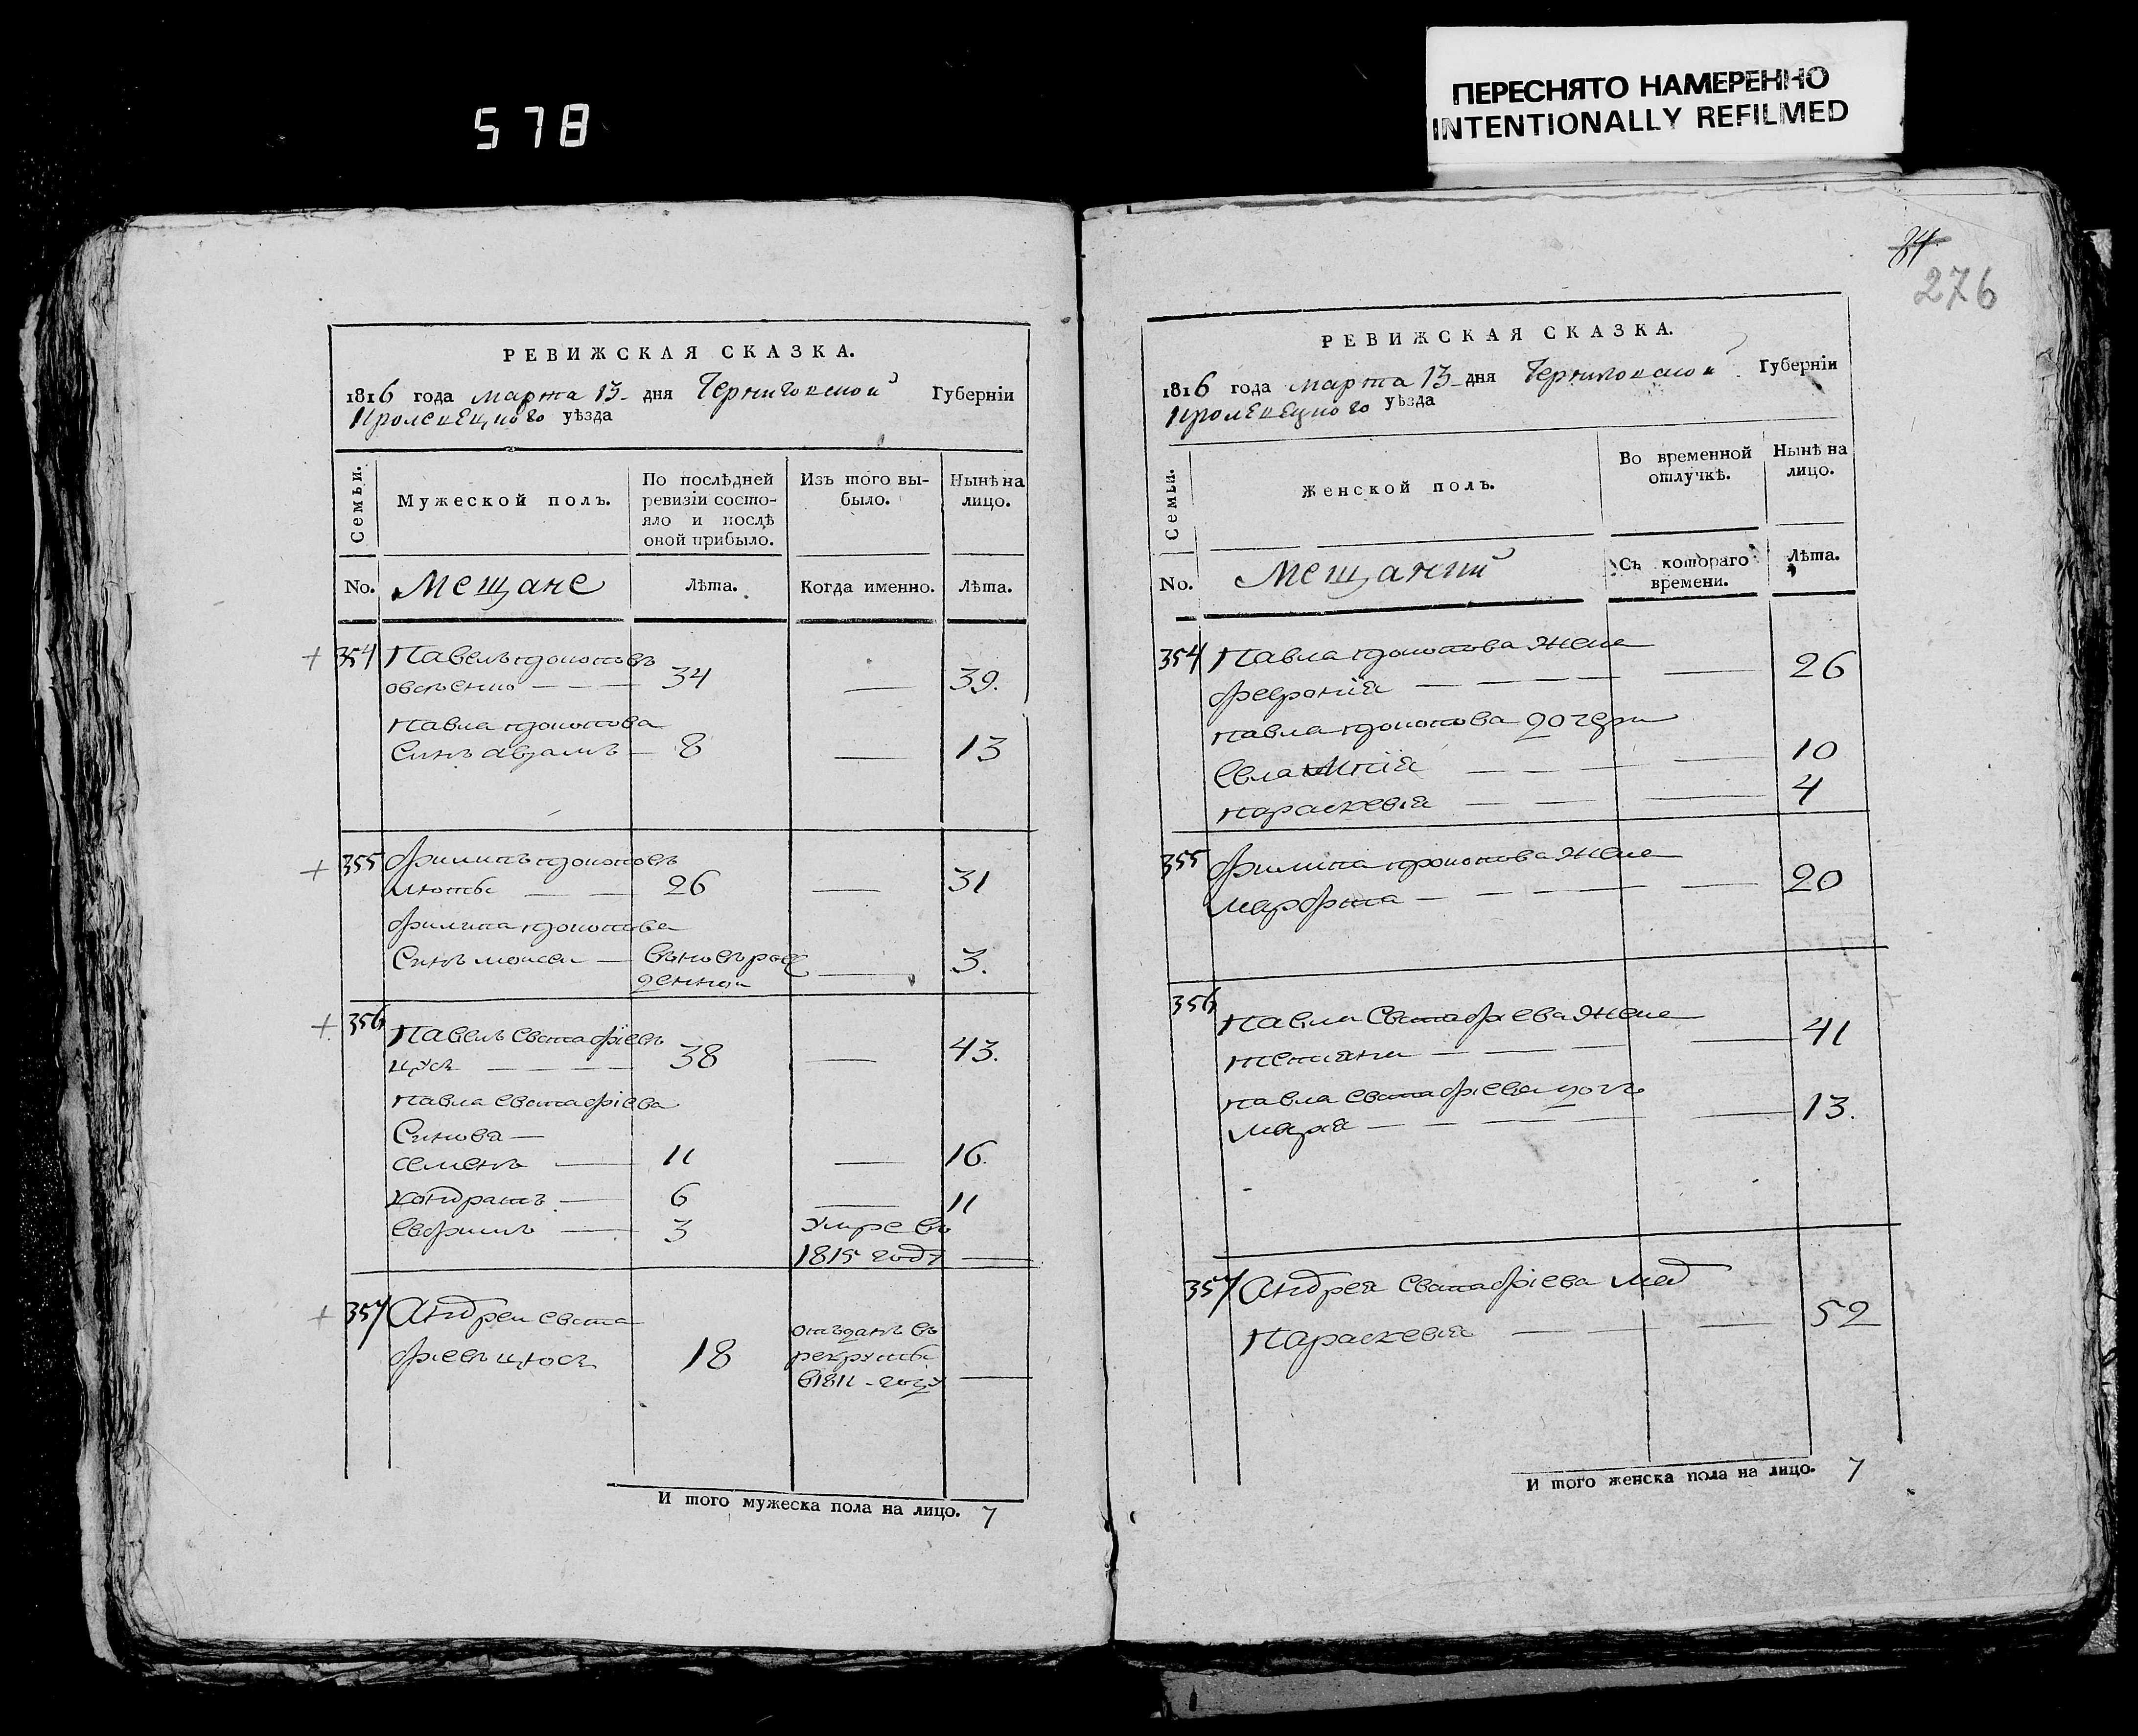 578
ПЕРЕСНЯТО НАМЕРЕННО
INTENTIONALLY REFILMED
84
276
РЕВИЖСКАЯ СКАЗКА.
1816 года марта 13 дня Черниговской Губерніи
Кролевецкого уѣзда
Семьи.
Мужеской полъ.
По послѣдней ревизіи состояло и послѣ оной прибыло.
Изъ того выбыло.
Нынѣ на лицо.
No. Мещане Лѣта. Когда именно. Лѣта.
354 Павелъ
34 — 39.
Павла
Синъ Абрамъ — 8 — 13
355 Филипъ
26 — 31
Филипа
Синъ Моисеи — вьновърож
денной — 3.
356 Павелъ Евстафіевъ
38 — 43.
Павла Евстафіева
Синова —
Семенъ — 11 — 16.
Кондратъ — 6 — 11
Ефримъ — 3 Умре въ
1815 году —
357 Андреи Евста
фіевъ 18 отъданъ въ
рекруты
в1811 году —
И того мужеска пола на лицо. 7
РЕВИЖСКАЯ СКАЗКА.
1816 года марта 13 дня Черниговской Губерніи
Кролевецкого уѣзда
Семьи.
Женской полъ.
Во временной отлучкѣ.
Нынѣ на лицо.
No. Мещанки Съ котораго времени. Лѣта.
354 Павла жена
Феврония — 26
Павла дочери
10
Параскевия — 4
355 Филипа жена
Марфа — 20
356 Павла Евстафіева жена
— 41
Павла Евстафіева дочъ
Мария — 13.
357 Андрея Евстафіева мат
Параскевия — 52
И того женска пола на лицо. 7